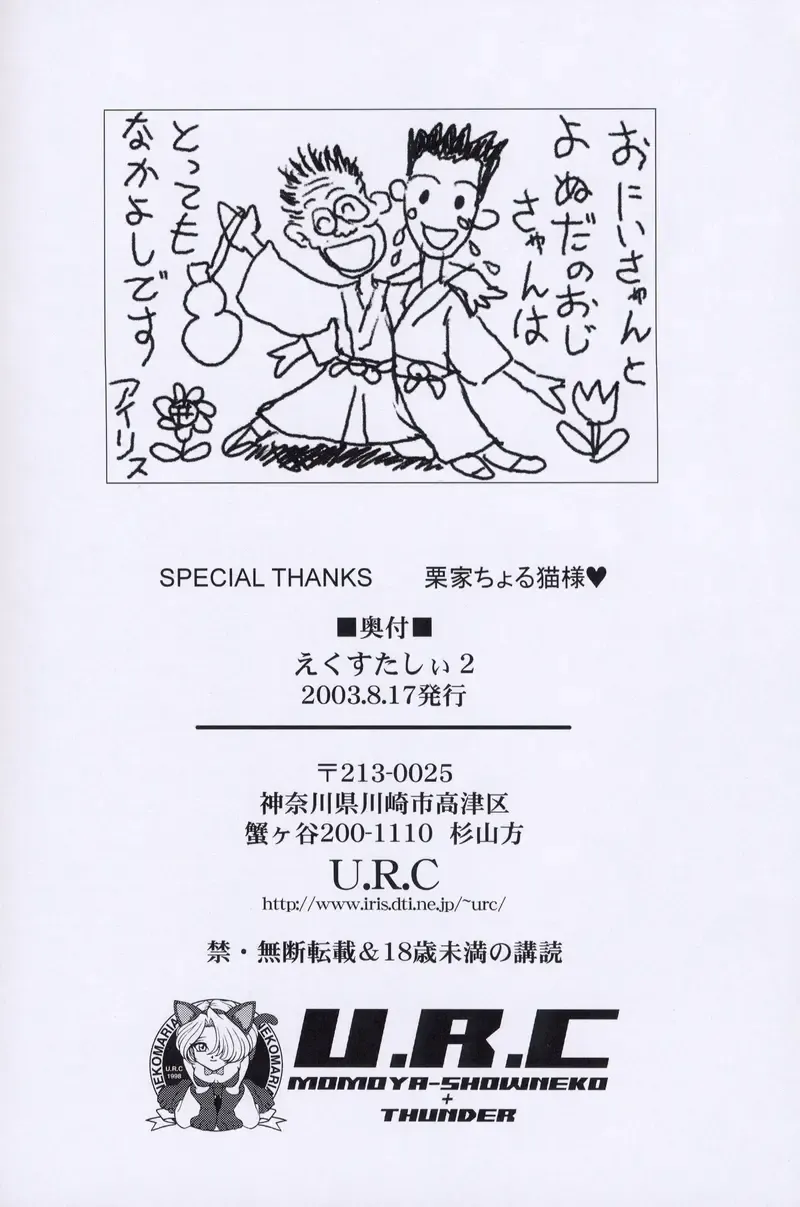 おにいちゃんと
よねだのおじ
ちゃんは
とっても
なかよしです
アイリス
SPECIAL THANKS 栗家ちょる猫様♥
■奥付■
えくすたしぃ2
2003.8.17発行
〒213-0025
神奈川県川崎市高津区
蟹ヶ谷200-1110 杉山方
U.R.C
http://www.iris.dti.ne.jp/~urc/
禁・無断転載&18歳未満の講読
NEKOMARIA NEKOMARIA
U.R.C
1998
U.R.C
MOMOYA-SHOWNEKO
+
THUNDER